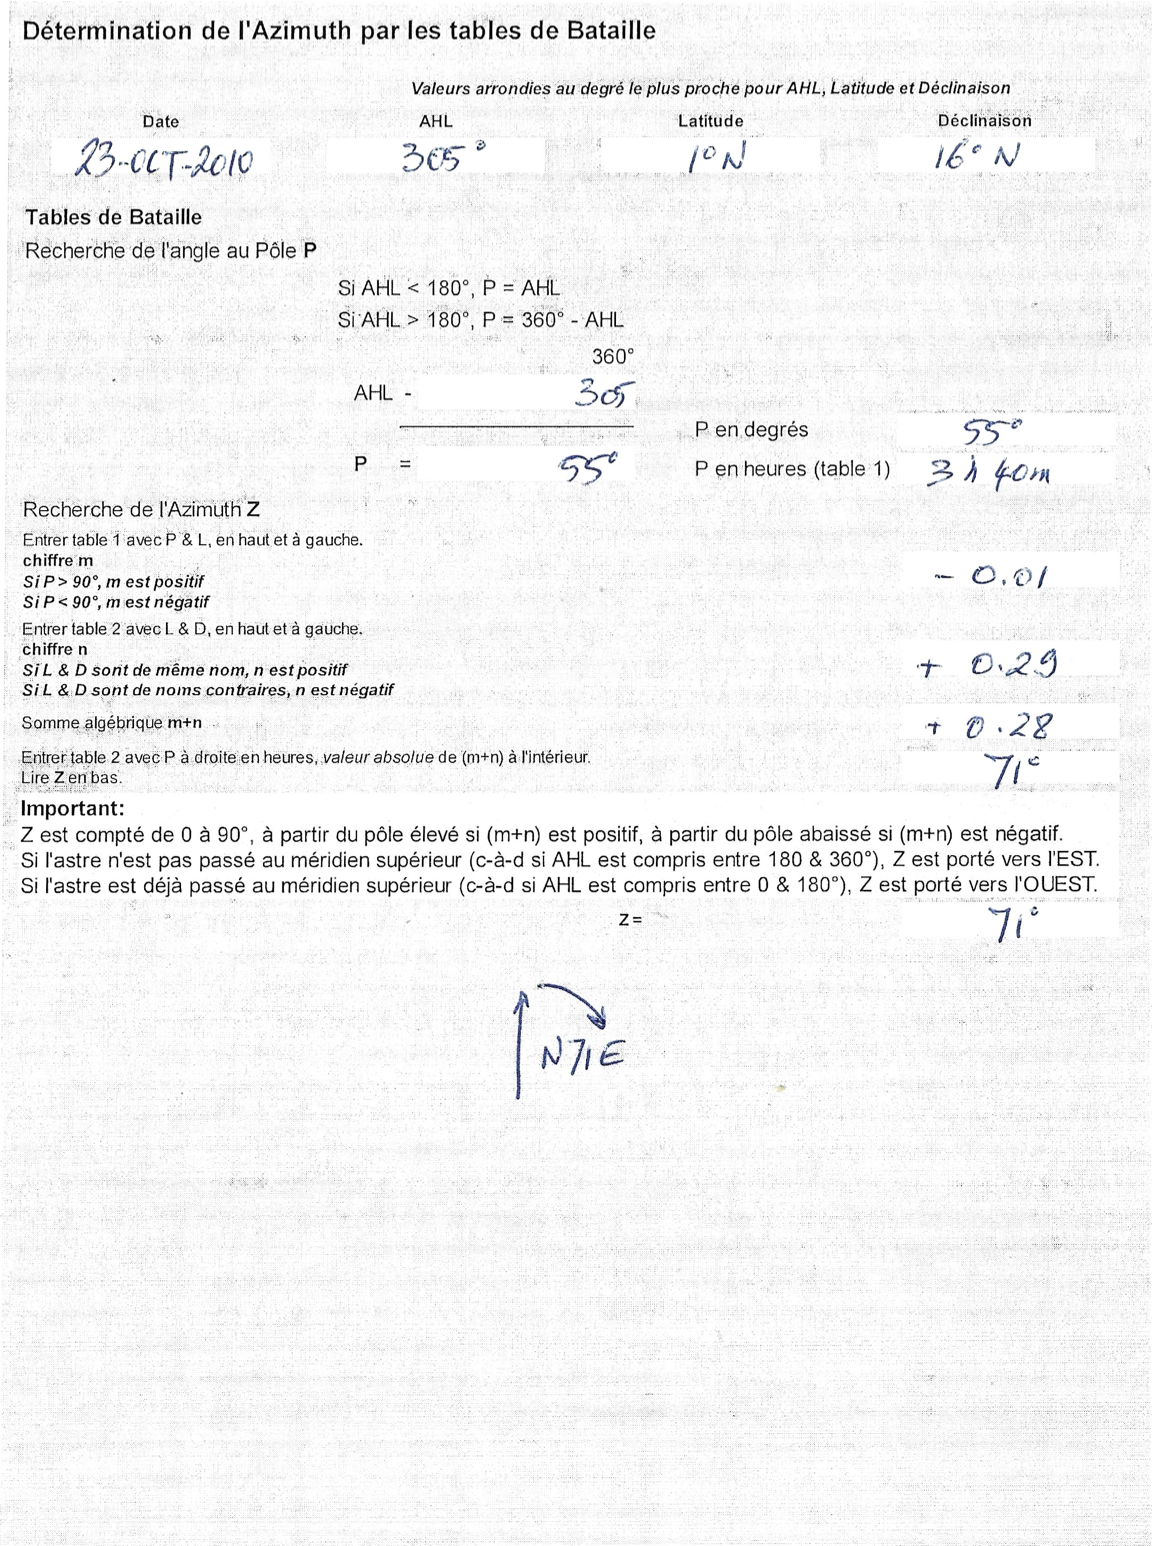 Détermination de l'Azimuth par les tables de Bataille
Valeurs arrondies au degré le plus proche pour AHL, Latitude et Déclinaison
Date AHL Latitude Déclinaison
23-OCT-2010 305° 1° N 16° N
Tables de Bataille
Recherche de l'angle au Pôle P
Si AHL < 180°, P = AHL
Si AHL > 180°, P = 360° - AHL
360°
AHL - 305
P en degrés 55°
P = 55°
P en heures (table 1) 3 h 40m
Recherche de l'Azimuth Z
Entrer table 1 avec P & L, en haut et à gauche.
chiffre m - 0.01
Si P > 90°, m est positif
Si P < 90°, m est négatif
Entrer table 2 avec L & D, en haut et à gauche.
chiffre n
Si L & D sont de même nom, n est positif + 0.29
Si L & D sont de noms contraires, n est négatif
Somme algébrique m+n + 0.28
Entrer table 2 avec P à droite en heures, valeur absolue de (m+n) à l'intérieur. 71°
Lire Z en bas.
Important:
Z est compté de 0 à 90°, à partir du pôle élevé si (m+n) est positif, à partir du pôle abaissé si (m+n) est négatif.
Si l'astre n'est pas passé au méridien supérieur (c-à-d si AHL est compris entre 180 & 360°), Z est porté vers l'EST.
Si l'astre est déjà passé au méridien supérieur (c-à-d si AHL est compris entre 0 & 180°), Z est porté vers l'OUEST.
Z = 71°
N 71 E